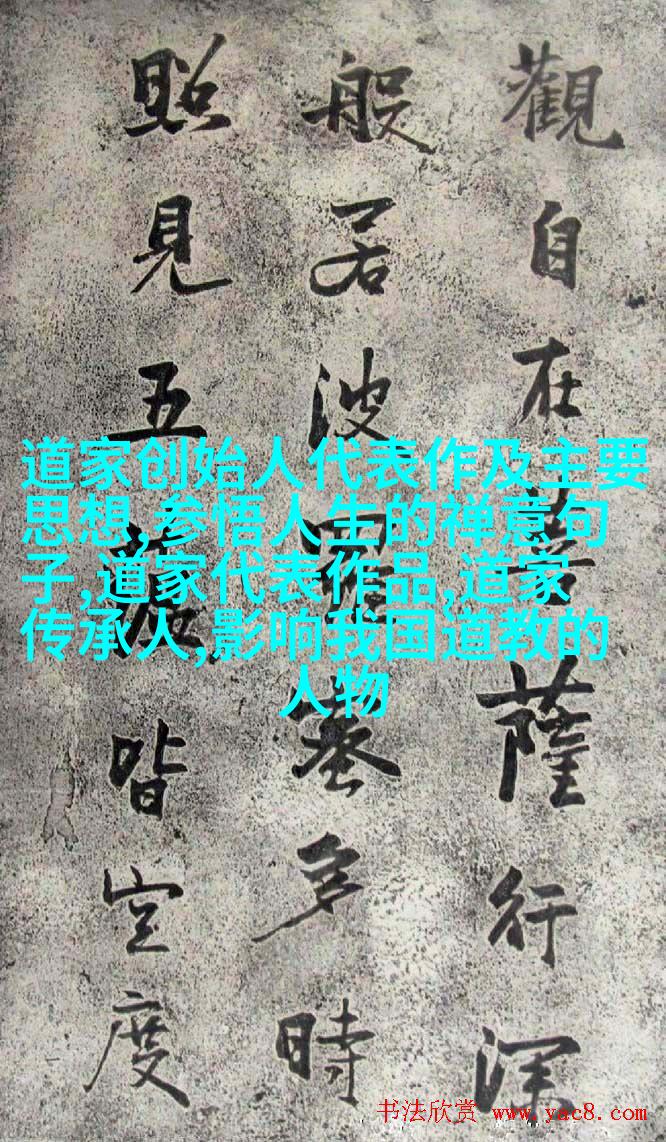 觀自在菩薩行深
般若波羅蜜多時
照見五蘊皆空度
道家创始人代表作及主要
思想,参悟人生的禅意句
子,道家代表作品,道家
传承人,影响我国道教的
人物
书法欣赏 www.yac8.com